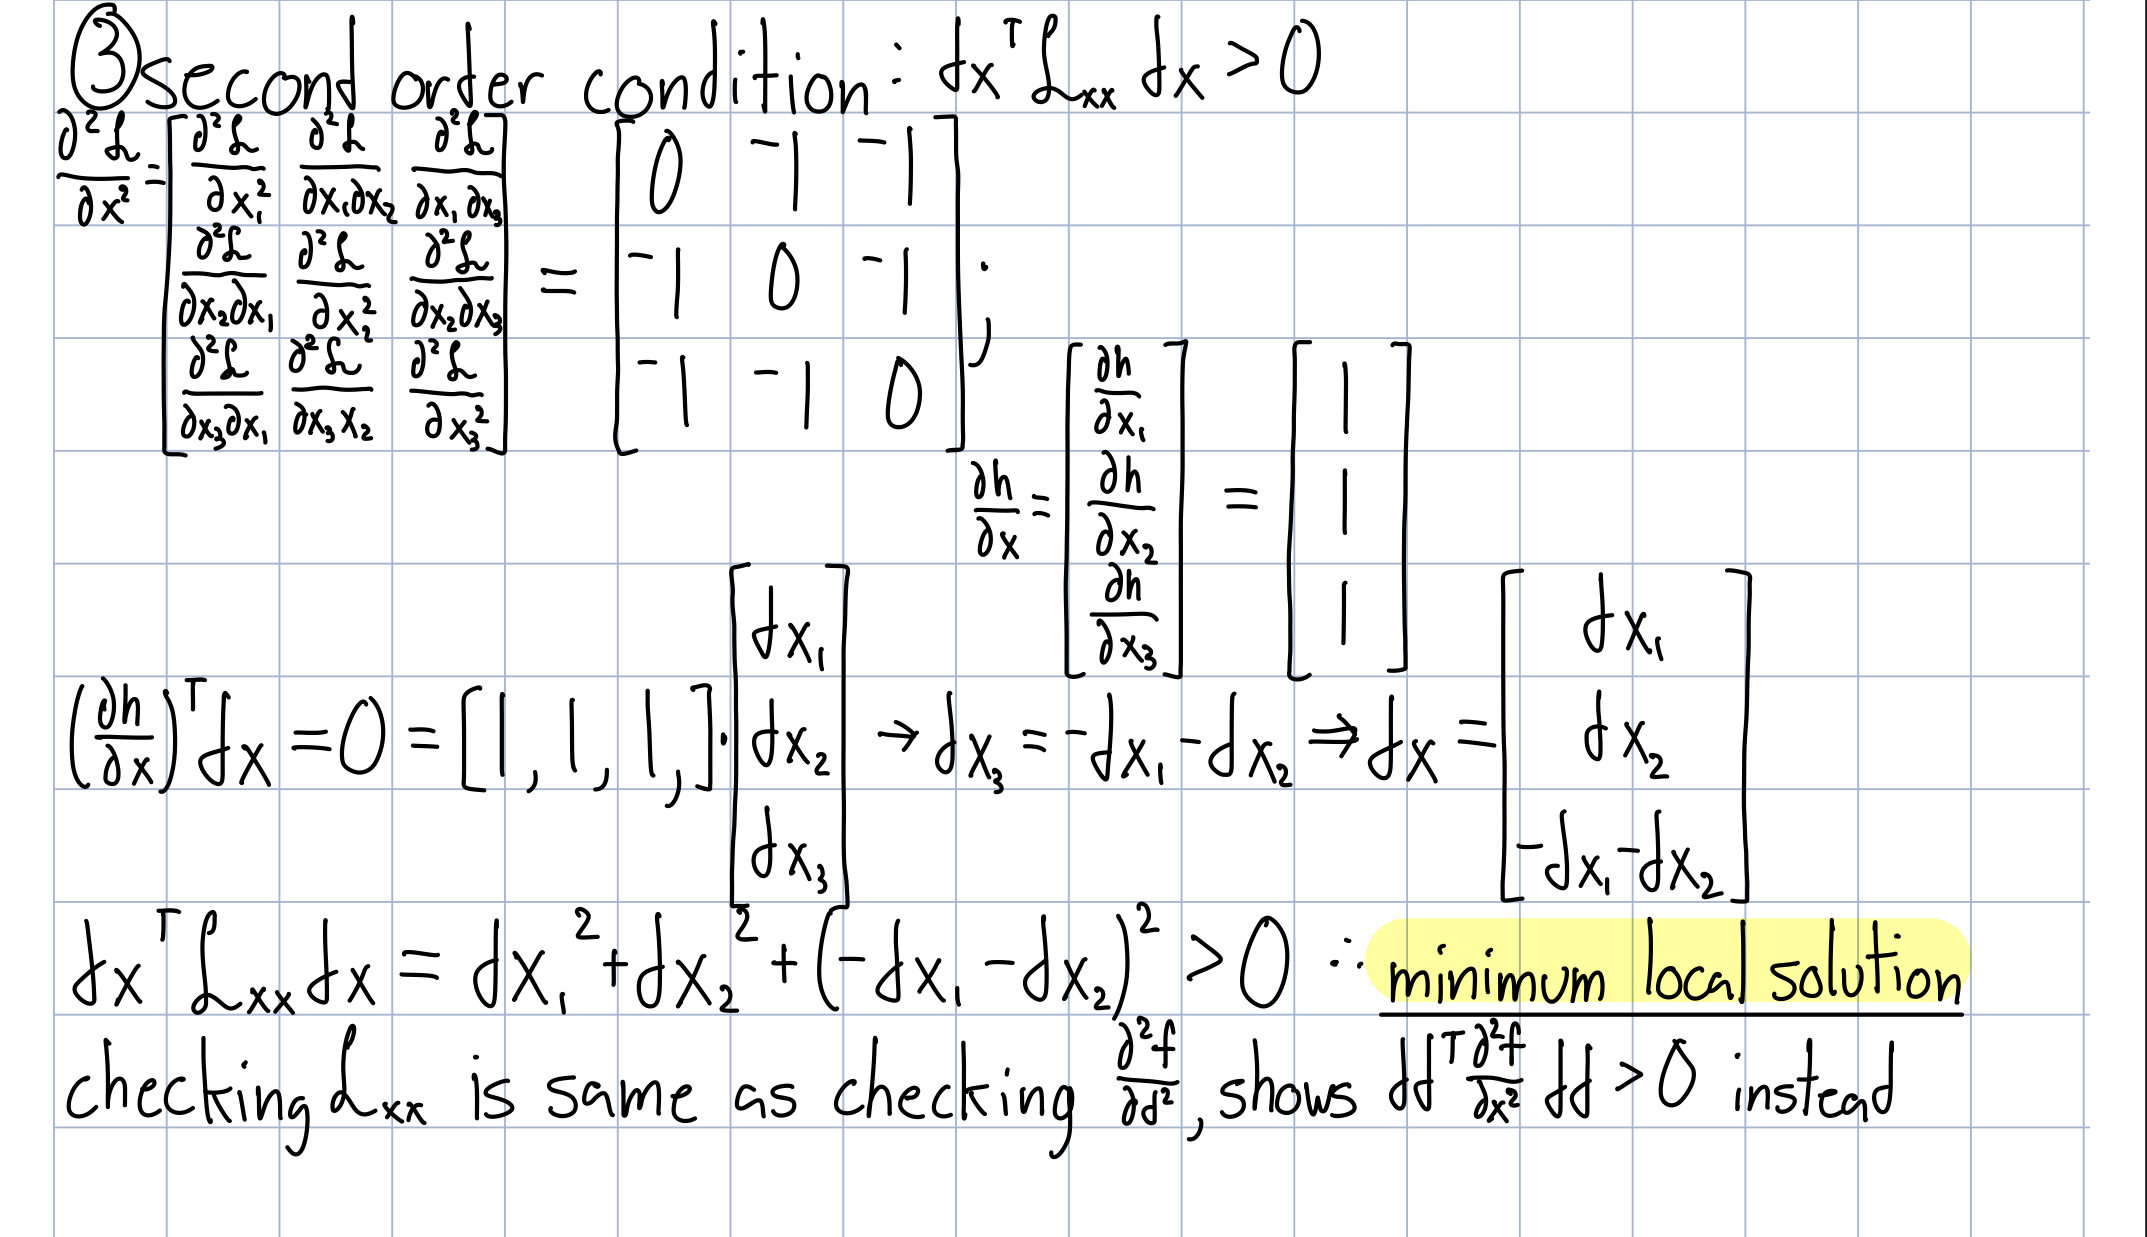 ③ second order condition: dxᵀ ℒₓₓ dx > 0
∂²ℒ/∂x² = [∂²ℒ/∂x₁² ∂²ℒ/∂x₁∂x₂ ∂²ℒ/∂x₁∂x₃; ∂²ℒ/∂x₂∂x₁ ∂²ℒ/∂x₂² ∂²ℒ/∂x₂∂x₃; ∂²ℒ/∂x₃∂x₁ ∂²ℒ/∂x₃x₂ ∂²ℒ/∂x₃²] = [0 -1 -1; -1 0 -1; -1 -1 0];
∂h/∂x = [∂h/∂x₁; ∂h/∂x₂; ∂h/∂x₃] = [1; 1; 1]
(∂h/∂x)ᵀ dx = 0 = [1, 1, 1,] · [dx₁; dx₂; dx₃] → dx₃ = -dx₁ - dx₂ ⇒ dx = [dx₁; dx₂; -dx₁ - dx₂]
dxᵀ ℒₓₓ dx = dx₁² + dx₂² + (-dx₁ - dx₂)² > 0 ∴ minimum local solution
checking ℒₓₓ is same as checking ∂²f/∂d², shows ddᵀ ∂²f/∂x² dd > 0 instead